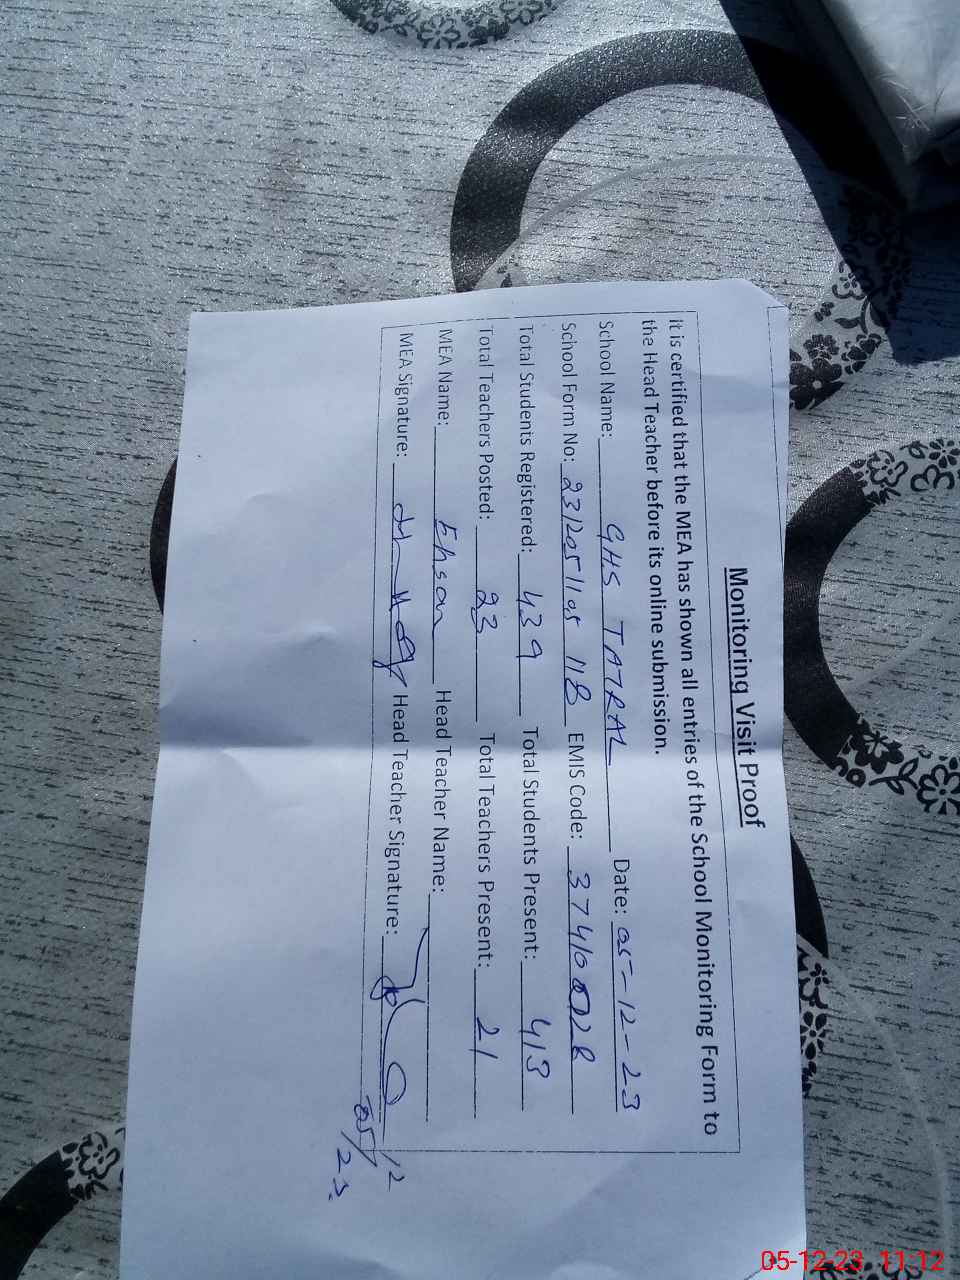 Monitoring Visit Proof
It is certified that the MEA has shown all entries of the School Monitoring Form to
the Head Teacher before its online submission.
School Name: GHS TATRAL Date: 05-12-23
School Form No: 231205 1105 118 EMIS Code:
Total Students Registered: 439 Total Students Present: 413
Total Teachers Posted: 23 Total Teachers Present: 21
MEA Name: Ehsan Head Teacher Name:
MEA Signature: Head Teacher Signature:
05/12
23.
05-12-23 11:12